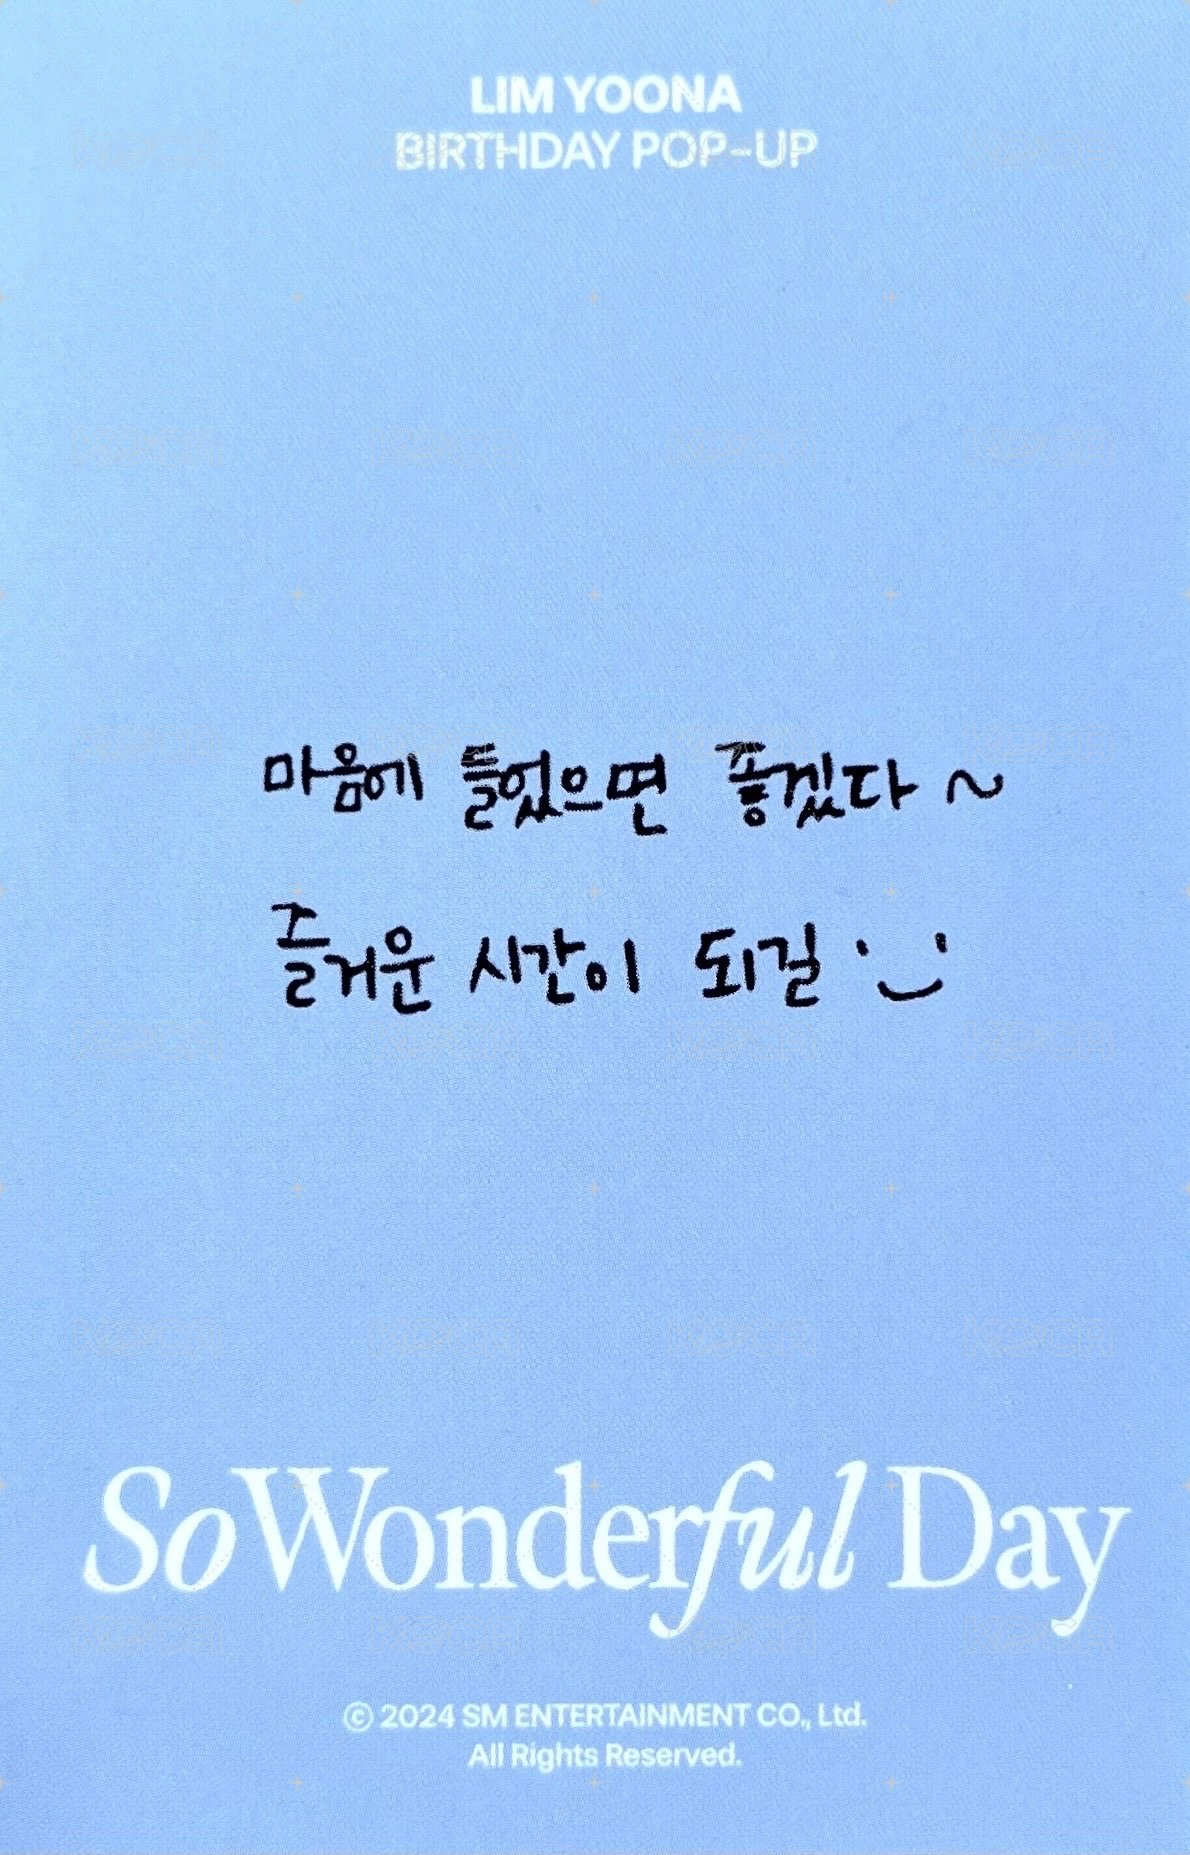 LIM YOONA
BIRTHDAY POP-UP
마음에 들었으면 좋겠다 ~
즐거운 시간이 되길
So Wonderful Day
© 2024 SM ENTERTAINMENT CO., Ltd.
All Rights Reserved.